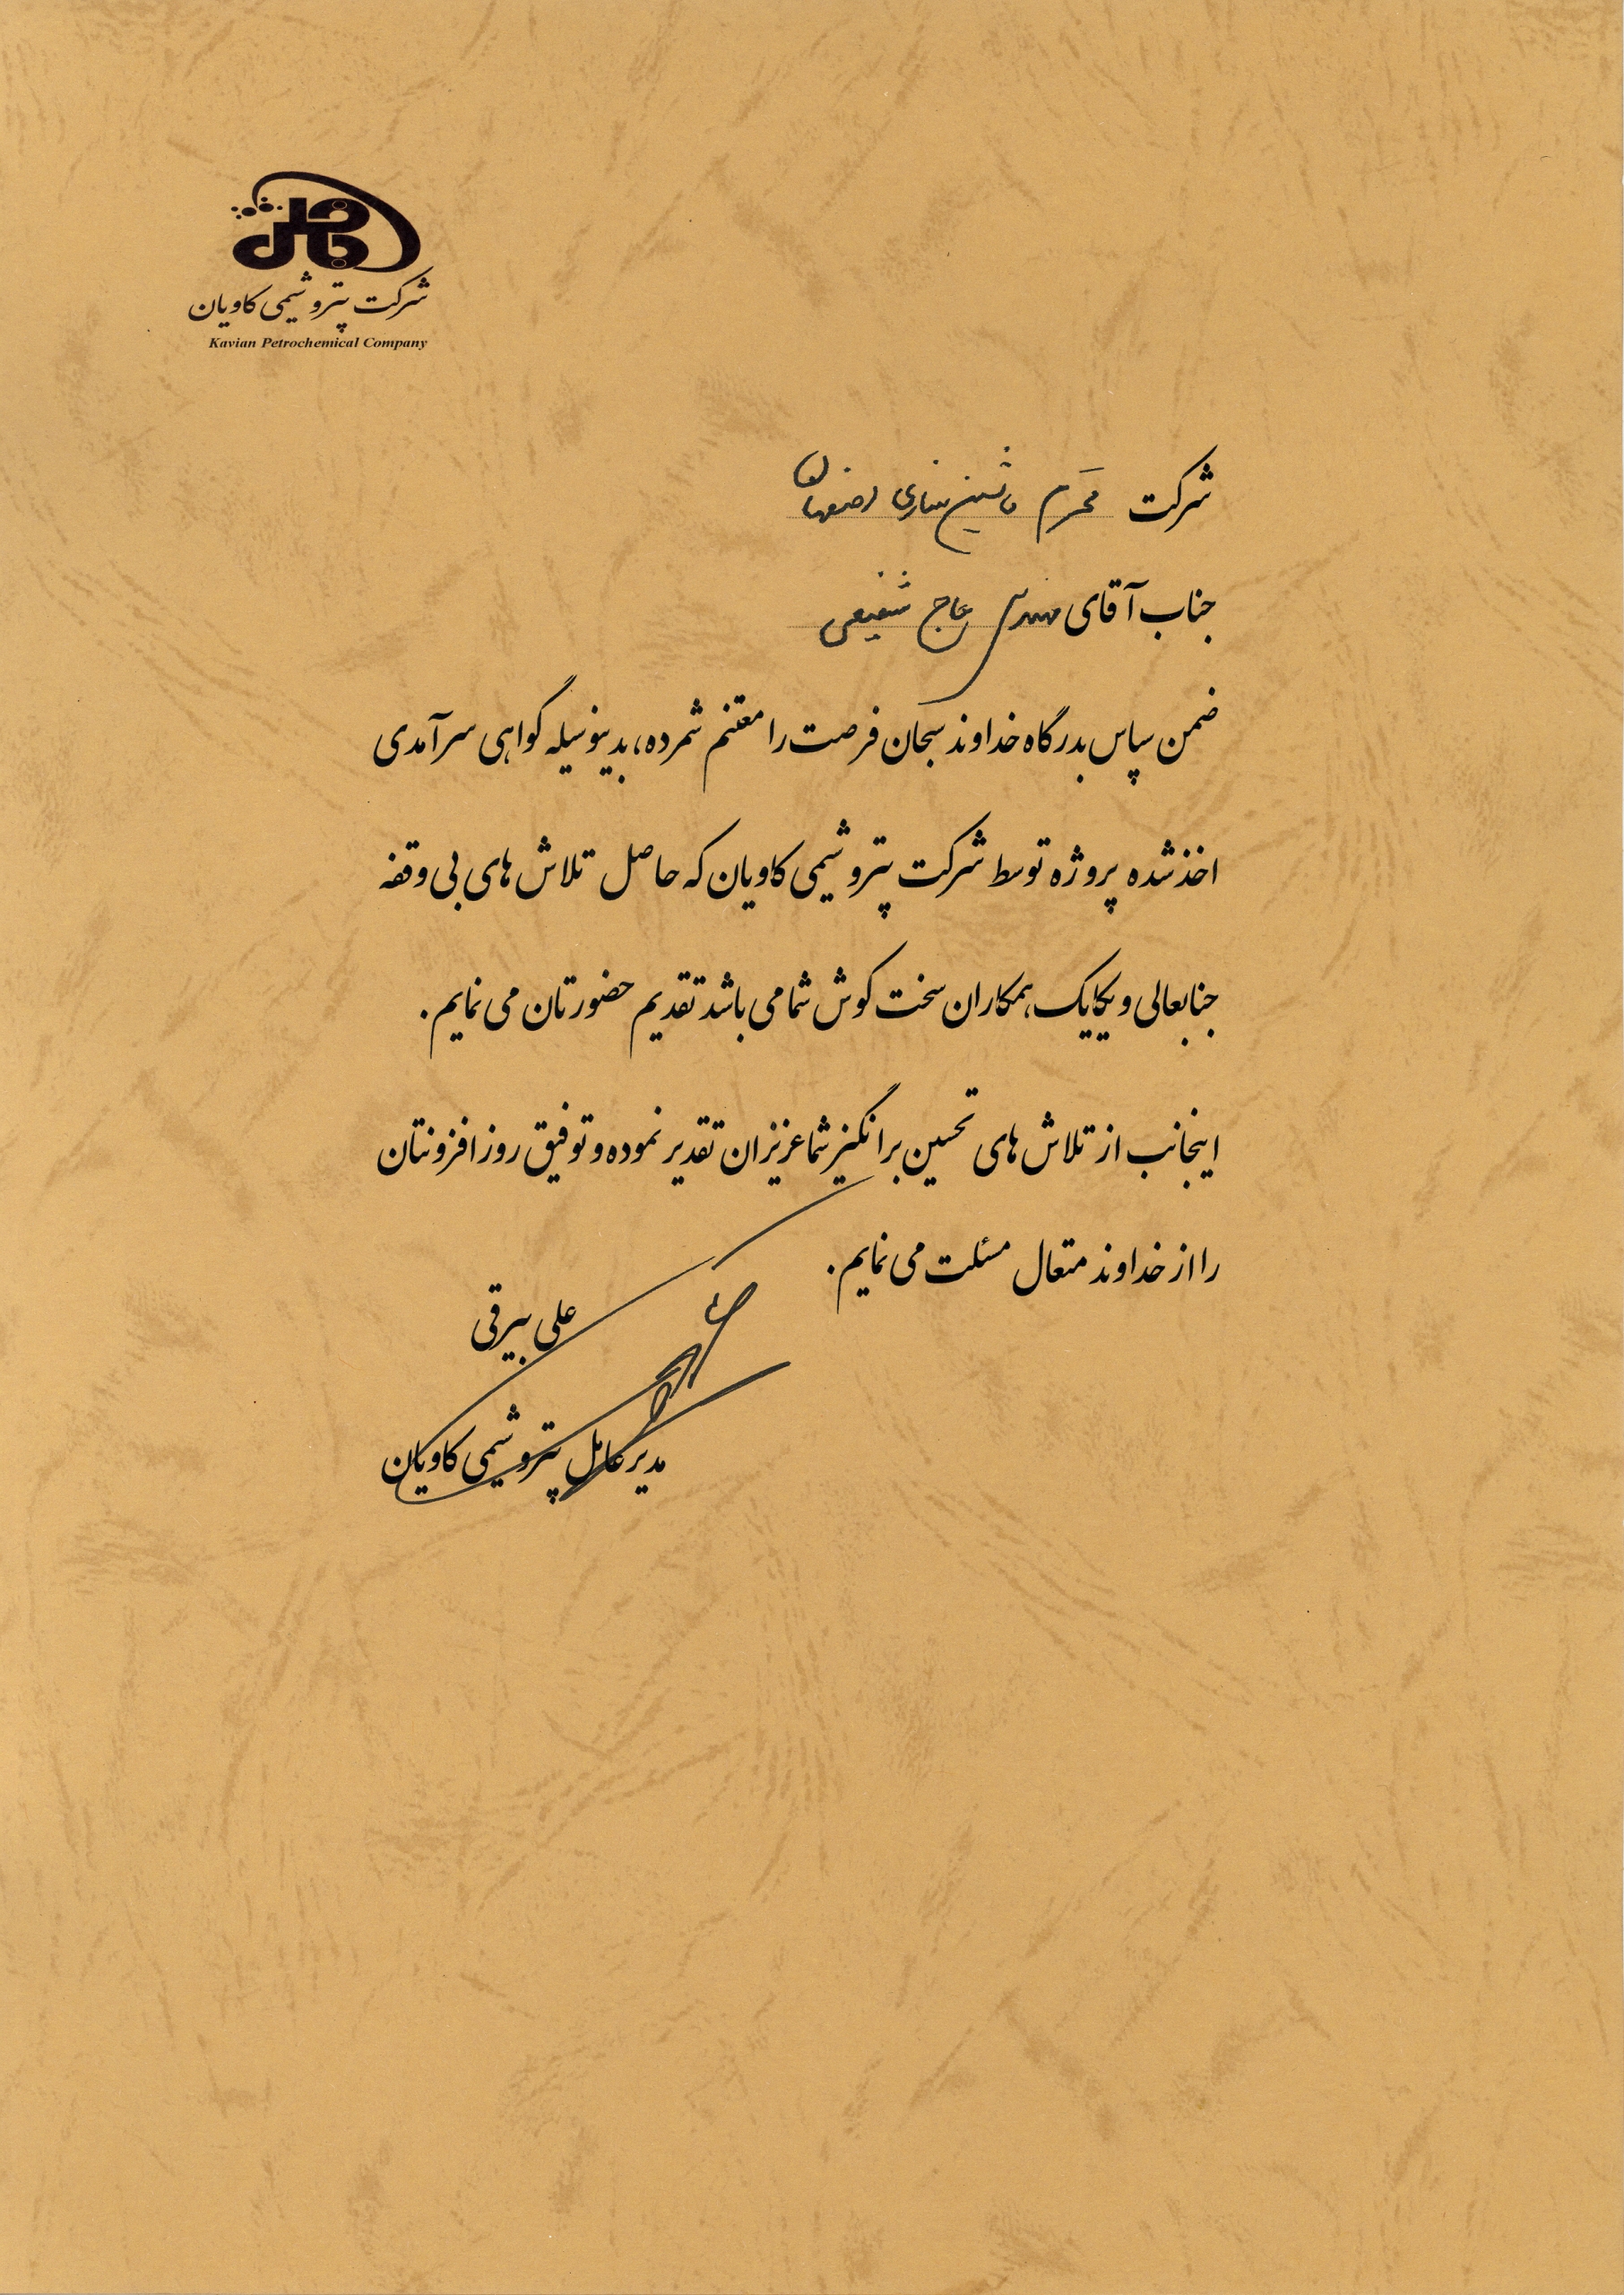 شرکت پتروشیمی کاویان
Kavian Petrochemical Company
شرکت محترم ماشین سازی اصفهان
جناب آقای مهندس حاج شفیعی
ضمن سپاس بدرگاه خداوند سبحان فرصت را مغتنم شمرده، بدینوسیله گواهی سرآمدی
اخذ شده پروژه توسط شرکت پتروشیمی کاویان که حاصل تلاش های بی وقفه
جنابعالی و یکایک همکاران سخت کوش شما می باشد تقدیم حضورتان می نمایم.
اینجانب از تلاش های تحسین برانگیز شما عزیزان تقدیر نموده و توفیق روز افزونتان
را از خداوند متعال مسئلت می نمایم.
علی بیرقی
مدیرعامل پتروشیمی کاویان